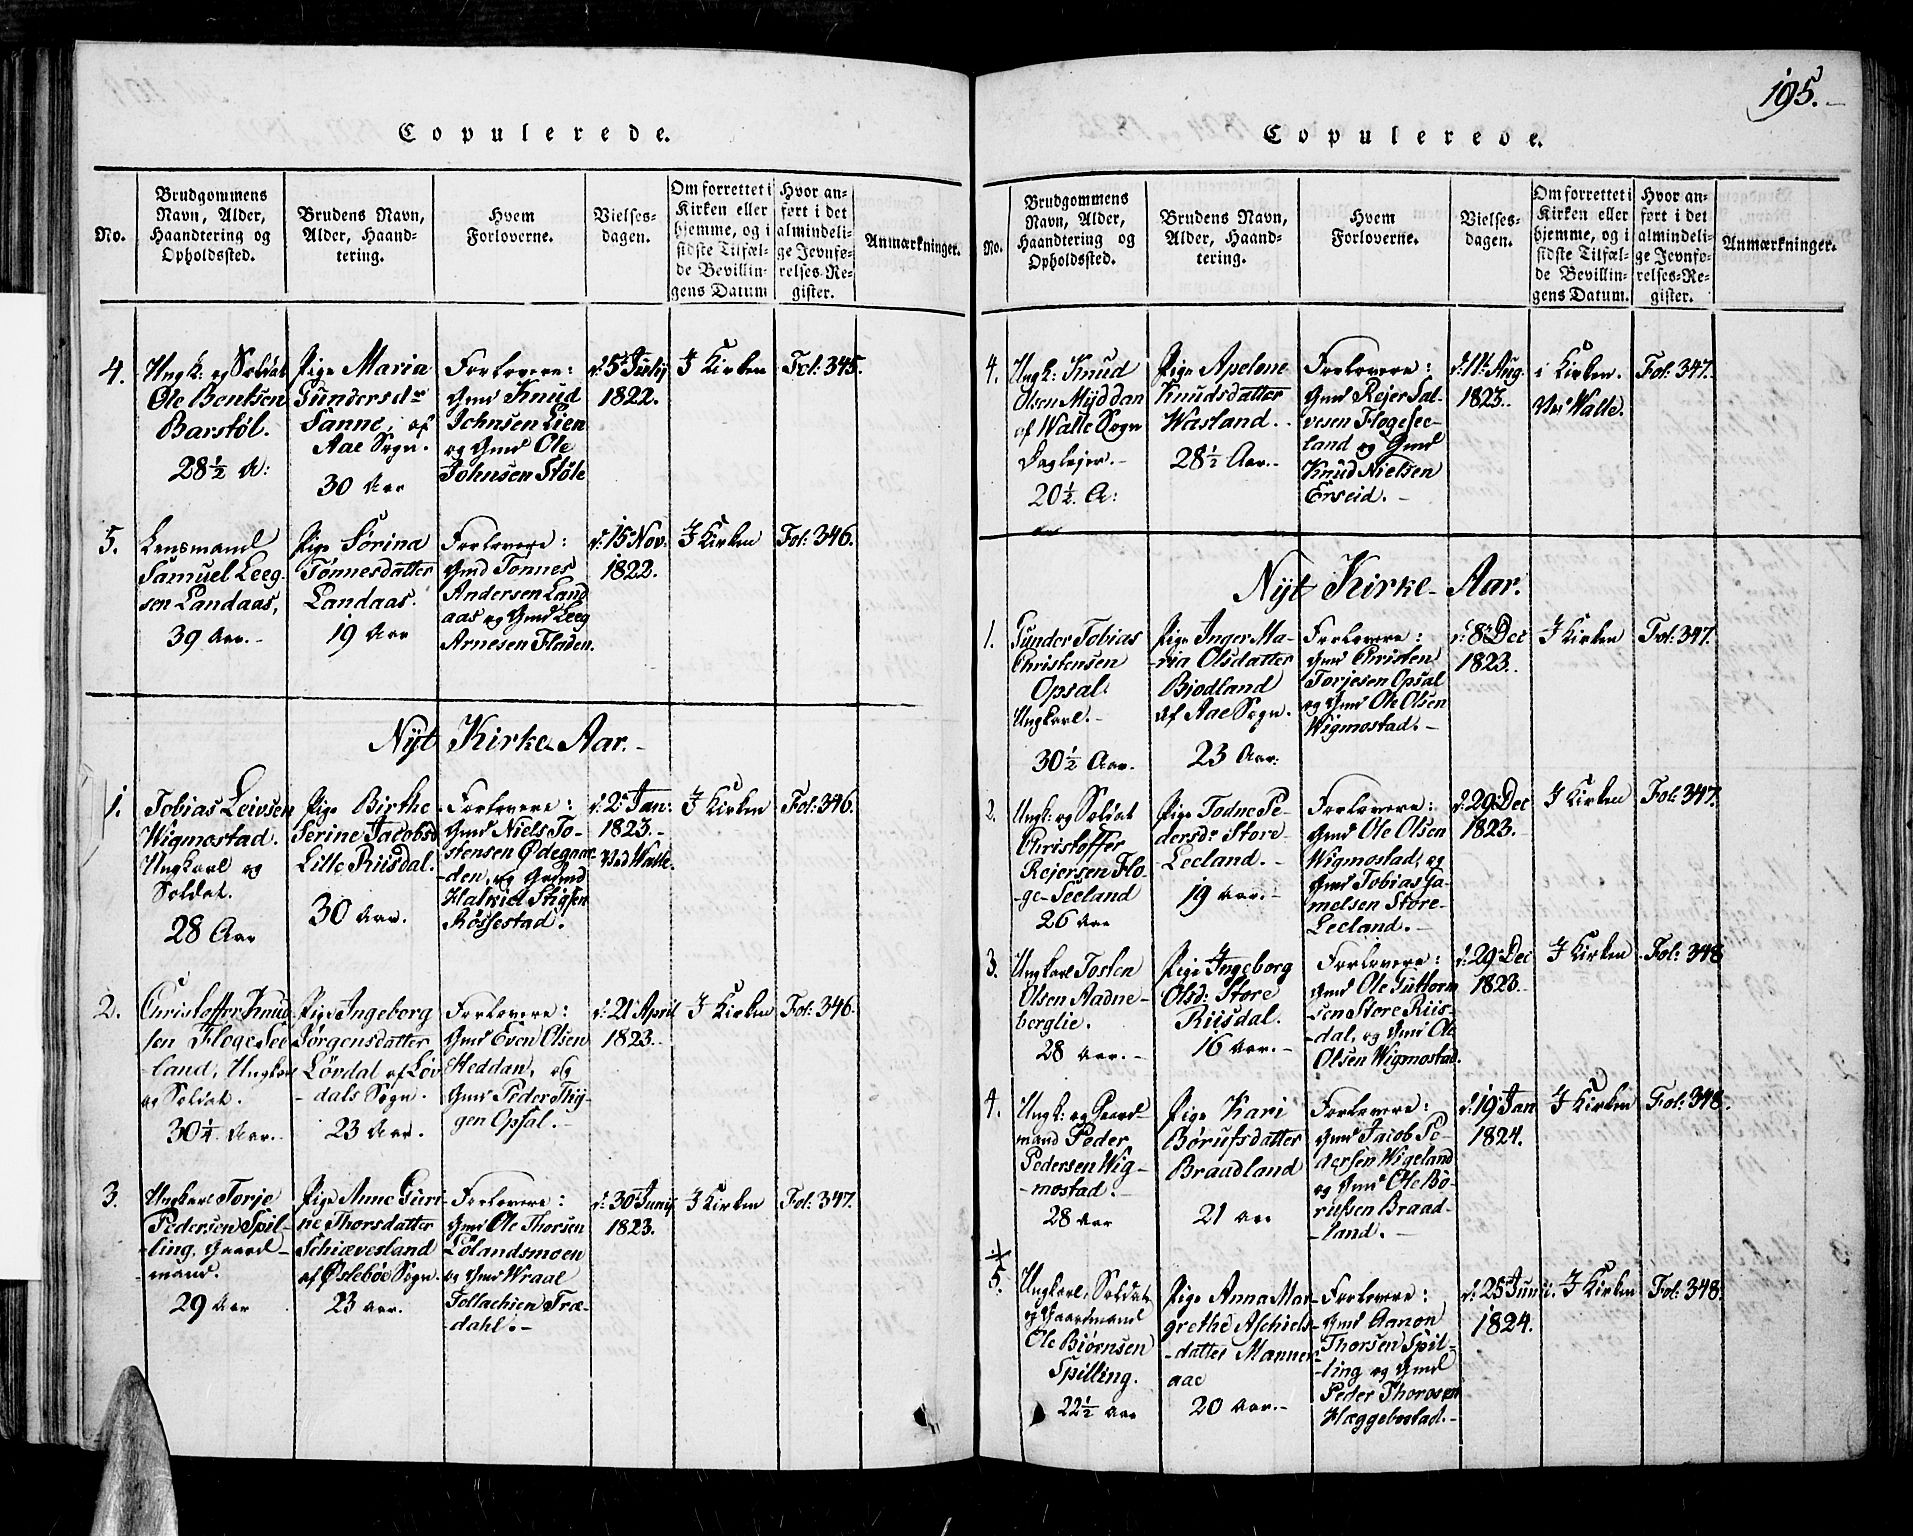 195.
Copulerede.
No.
Brudgommens
Navn, Alder,
Haandtering og
Opholdssted.
Brudens Navn,
Alder, Haand-
tering.
Hvem
Forloverne.
Vielses-
dagen.
Om forrettet i
Kirken eller
hjemme, og i
sidste Tilfæl-
de Bevillin-
gens Datum
Hvor an-
ført i det
almindeli-
ge Jevnfø-
relses-Re-
gister.
Anmærkninger.
4.
Ungk: og Soldat
Ole Bentsen
Barstøl.
28½ A:
Pige Maria
Gundersdr
Sanne, af
Aae Sogn.
30 Aar
Forlovere:
Gmd Knud
Johnsen Lien
og Gmd Ole
Johnsen Støle
d: 5t July
1822.
I Kirken
Fol: 345.
5.
Lensmand
Samuel Leeg-
sen Landaas,
39 Aar.-
Pige Sørina
Tønnesdatter
Landaas.
19 Aar
Forlovere:
Gmd Tønnes
Andersen Land
aas og Gmd Leeg
Arnesen Fladen.
d: 15 Nov:
1822.
I Kirken
Fol: 346.
Nyt Kirke-Aar.-
1.
Tobias Leivsen
Wigmostad.
Ungkarl og
Soldat.
28 Aar
Pige Birthe
Serine Jacobsd
Lille Riisdal.
30 Aar.
Forlovere:
Gmd Niels To-
stensen Ødegaar-
-den, og Gmd
Halvid Stigsen
Røssestad.
d: 2 Jan:
1823.-
Ved Walle.
I Kirken
Fol: 346.
2.
Christoffer Knud-
sen Floge See
land, Ungkarl
og Soldat.
30¼. Aar..
Pige Ingeborg
Jørgensdatter
Løvdal af Løv
-dals Sogn.
23 Aar.
Forlovere:
Gmd Even Olsen
Heddan, og
Gmd Peder Thy-
gen Opsal.-
d: 21 April
1823.-
I Kirken
Fol: 346.
3.
Ungkarl Torje
Pedersen Spil-
-ling, Gaard-
-mand.
29 Aar
Pige Anne Guri-
ne Thorsdatter
Schiævesland
af Øslebøe Sogn.
23 Aar.
Forlovere:
Gmd Ole Thorsen
Lølandsmoen
og Gmd Wraal
Tollachsen Træ-
dahl.-
d: 30 Junij
1823.
I Kirken
Fol: 347.
Copulerede.
No.
Brudgommens
Navn, Alder,
Haandtering og
Opholdssted.
Brudens Navn,
Alder, Haand-
tering.
Hvem
Forloverne.
Vielses-
dagen.
Om forrettet i
Kirken eller
hjemme, og i
sidste Tilfæl-
de Bevillin-
gens Datum.
Hvor an-
ført i det
almindeli-
ge Jevnfø-
relses-Re-
gister.
Anmærkninger.
4.
Ungk: Knud
Olsen Myddan
af Walle Sogn
Dagleier.-
20½. A:
Pige Apelone
Knudsdatter
Wasland.
28½ Aar.-
Forlovere:
Gmd Rejer Sal-
vesen Flogesee-
land og Gmd
Knud Nielsen
Erseid.-
d: 11t Aug.
1823.
i Kirken.
Ved Walle.
Fol: 347.
Nyt Kirke-Aar.
1.
Gunder Tobias
Christensen
Opsal.
Ungkarl.-
30½ Aar.
Pige Inger Ma-
ria Olsdatter
Bjodland
af Aae Sogn.
23 Aar.
Forlovere:
Gmd Christen
Torjesen Opsal
og Gmd Ole Olsen
Wigmostad.-
d: 8 Dec
1823.
I Kirken
Fol: 347.
2.
Ungk: og Soldat
Christoffer
Rejersen Flo-
-ge-Seeland
26 Aar
Pige Todne Pe-
dersdr Store
Leeland.-
19 Aar.-
Forlovere:
Gmd Ole Olsen
Wigmostad, og
Gmd Tobias Ga-
melsen Store-
Leeland.-
d: 29 Dec
1823.-
I Kirken
Fol: 347.
3.
Ungkarl Tosten
Olsen Aadne-
berglie.
28 Aar.-
Pige Ingeborg
Olsd: Store
Riisdal.
16 Aar.-
Forlovere:
Gmd Ole Guttorm
sen Store Riis-
-dal, og Gmd Ole
Olsen Wigmostad.
d: 29 Dec
1823.-
I Kirken
Fol: 348
4.
Ungk: og Gaard-
mand Peder
Pedersen Wig-
-mostad.-
28 Aar
Pige Kari
Børufsdatter
Braadland
21 Aar
Forlovere:
Gmd Jacob Pe-
dersen Wigeland
og Gmd Ole Bø-
rufsen Braad-
-land.-
d: 19 Jan
1824.
I Kirken
Fol: 348.
5.
Ungkarl, Soldat
og Gaardmand
Ole Biørnsen
Spilling.
22½ Aar
Pige Anna Mar-
grethe Aschiels-
-datter Manner-
aae
20 Aar.-
Forlovere:
Gmd Aanon
Thorsen Spil-
-ling og Gmd
Peder Thorosen
Hæggebostad.-
d: 25 Juni
1824.
I Kirken
Fol: 348.